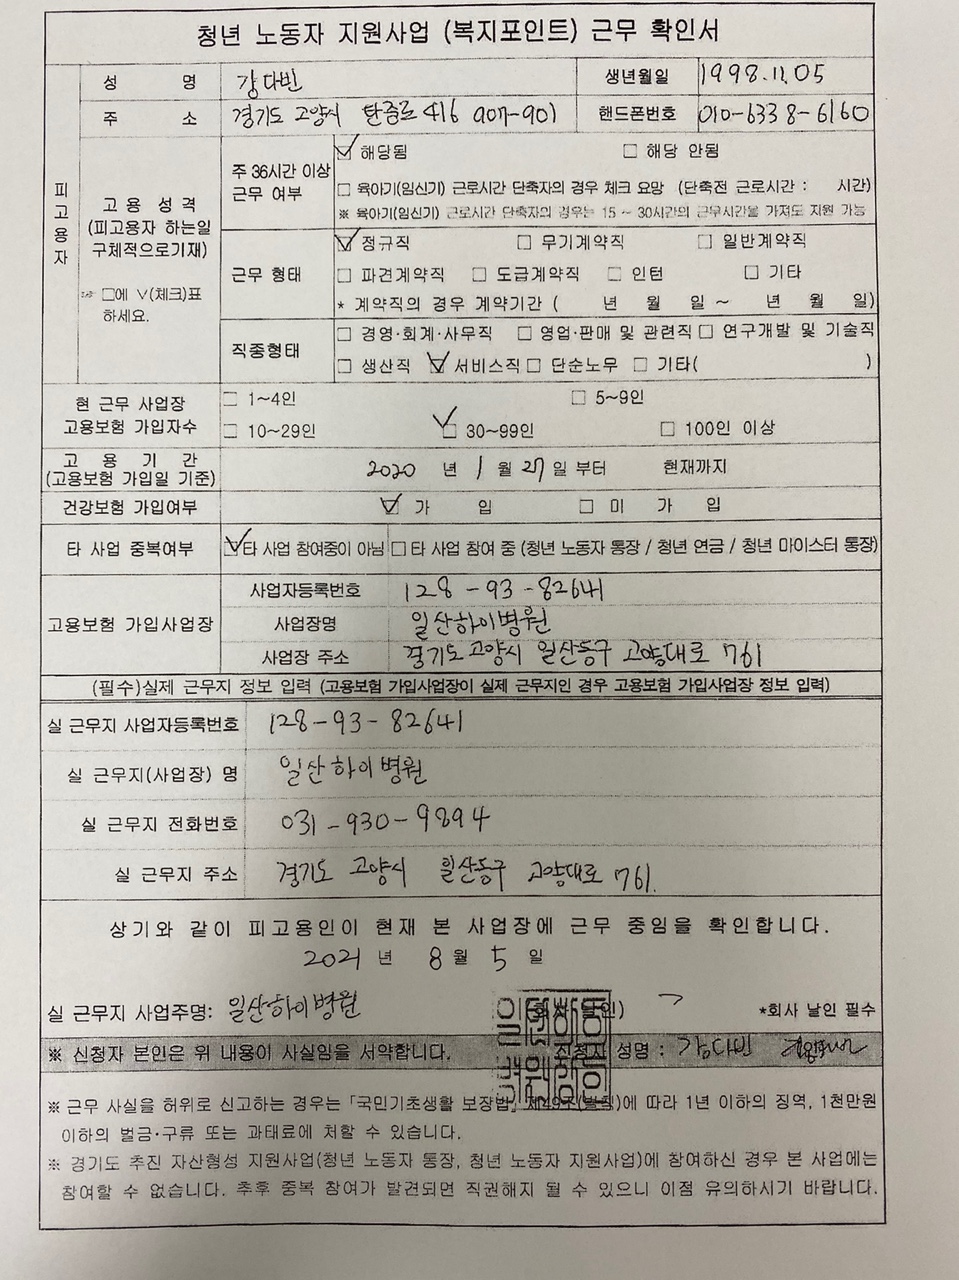 청년 노동자 지원사업 (복지포인트) 근무 확인서
피고용자
성 명 강다빈 생년월일 1998.11.05
주 소 경기도 고양시 탄중로 416 907-901 핸드폰번호 010-6338-6160
고용 성격
(피고용자 하는일
구체적으로기재)
☞ □에 V(체크)표
하세요.
주 36시간 이상
근무 여부
☑ 해당됨 □ 해당 안됨
□ 육아기(임신기) 근로시간 단축자의 경우 체크 요망 (단축전 근로시간 : 시간)
※ 육아기(임신기) 근로시간 단축자의 경우는 15 ~ 30시간의 근무시간을 가져도 지원 가능
근무 형태
☑ 정규직 □ 무기계약직 □ 일반계약직
□ 파견계약직 □ 도급계약직 □ 인턴 □ 기타
* 계약직의 경우 계약기간 ( 년 월 일 ~ 년 월 일)
직종형태
□ 경영·회계·사무직 □ 영업·판매 및 관련직 □ 연구개발 및 기술직
□ 생산직 ☑ 서비스직 □ 단순노무 □ 기타( )
현 근무 사업장
고용보험 가입자수
□ 1~4인 □ 5~9인
□ 10~29인 ☑ 30~99인 □ 100인 이상
고 용 기 간
(고용보험 가입일 기준)
2020 년 1 월 27 일 부터 현재까지
건강보험 가입여부 ☑ 가 입 □ 미 가 입
타 사업 중복여부 ☑ 타 사업 참여중이 아님 □ 타 사업 참여 중 (청년 노동자 통장 / 청년 연금 / 청년 마이스터 통장)
고용보험 가입사업장
사업자등록번호 128-93-82641
사업장명 일산하이병원
사업장 주소 경기도 고양시 일산동구 고양대로 761
(필수)실제 근무지 정보 입력 (고용보험 가입사업장이 실제 근무지인 경우 고용보험 가입사업장 정보 입력)
실 근무지 사업자등록번호 128-93-82641
실 근무지(사업장) 명 일산하이병원
실 근무지 전화번호 031-930-9894
실 근무지 주소 경기도 고양시 일산동구 고양대로 761.
상기와 같이 피고용인이 현재 본 사업장에 근무 중임을 확인합니다.
2021 년 8 월 5 일
실 근무지 사업주명: 일산하이병원 *회사 날인 필수
※ 신청자 본인은 위 내용이 사실임을 서약합니다. 신청자 성명 : 강다빈
※ 근무 사실을 허위로 신고하는 경우는 「국민기초생활 보장법」 제49조(벌칙)에 따라 1년 이하의 징역, 1천만원
이하의 벌금·구류 또는 과태료에 처할 수 있습니다.
※ 경기도 추진 자산형성 지원사업(청년 노동자 통장, 청년 노동자 지원사업)에 참여하신 경우 본 사업에는
참여할 수 없습니다. 추후 중복 참여가 발견되면 직권해지 될 수 있으니 이점 유의하시기 바랍니다.